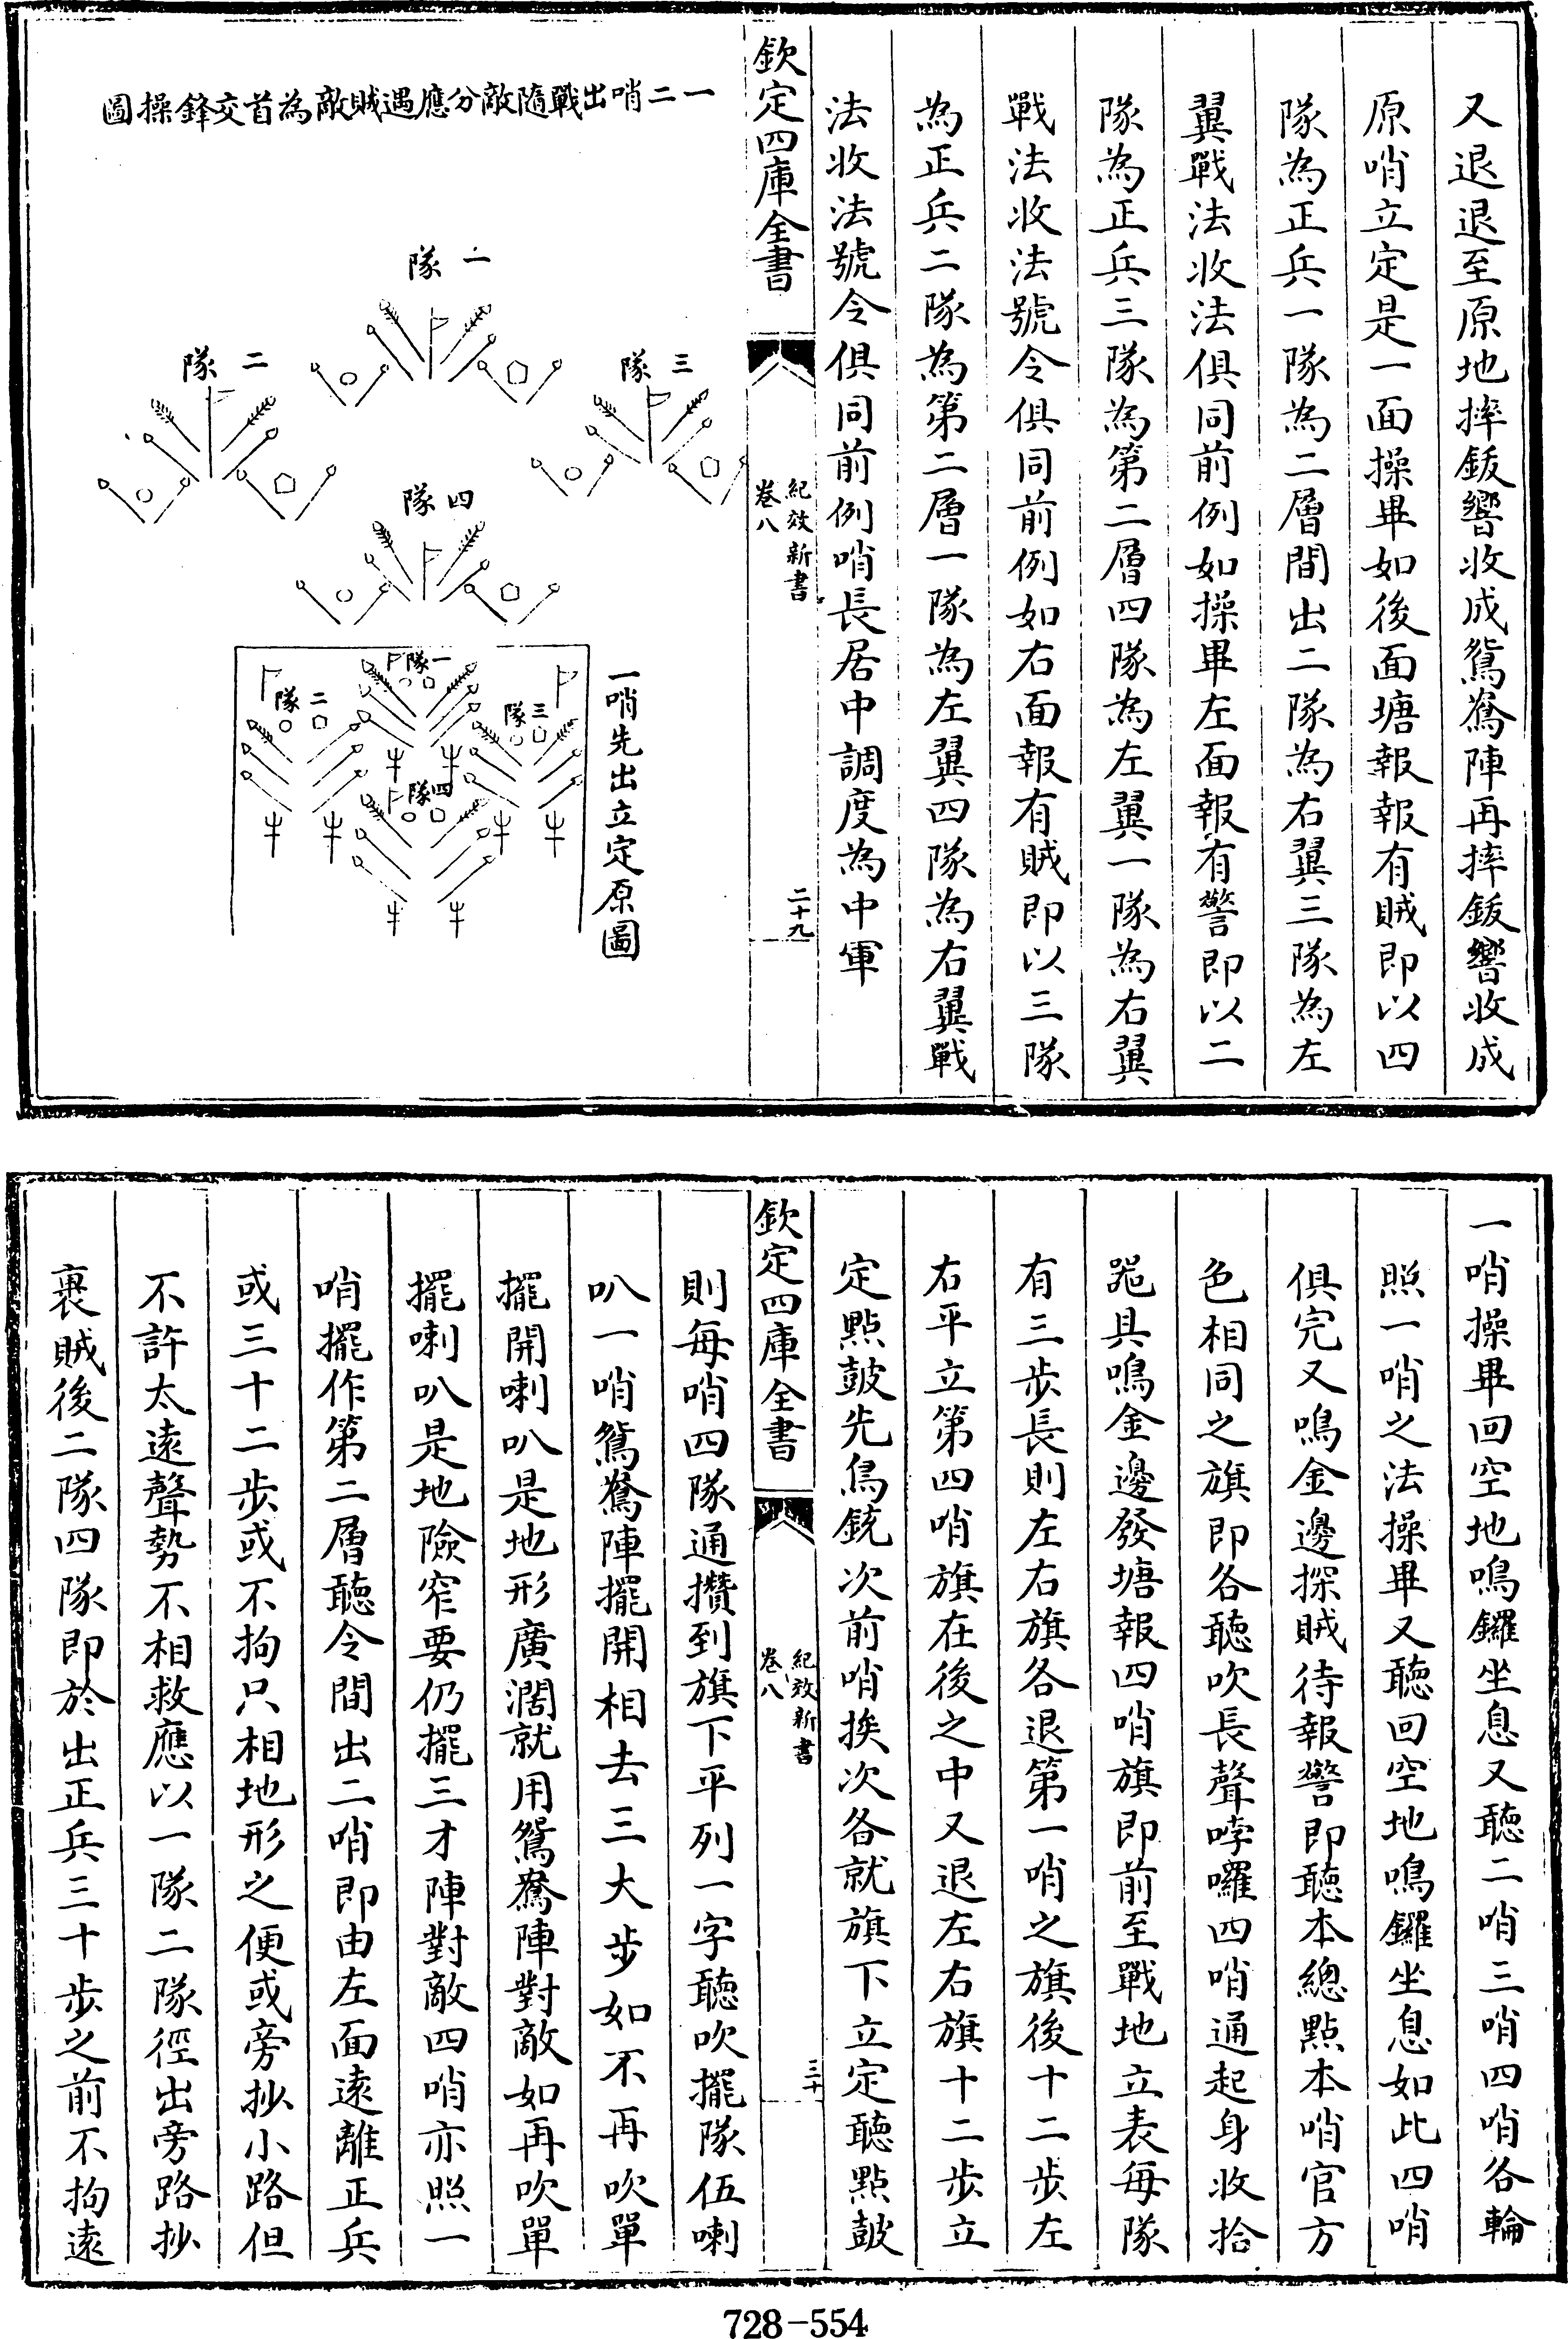 又退退至原地摔鈸響收成鴛鴦陣再摔鈸響收成
原哨立定是一面操畢如後面塘報報有賊即以四
隊為正兵一隊為二層間出二隊為右翼三隊為左
翼戰法收法俱同前例如操畢左面報有警即以二
隊為正兵三隊為第二層四隊為左翼一隊為右翼
戰法收法號令俱同前例如右面報有賊即以三隊
為正兵二隊為第二層一隊為左翼四隊為右翼戰
法收法號令俱同前例哨長居中調度為中軍
欽定四庫全書
紀效新書
卷八
二十九
一二哨出戰隨敵分應遇賊敵為首交鋒操圖
一隊
三隊
二隊
四隊
一哨先出立定原圖
一隊
三隊
二隊
四隊
一哨操畢回空地鳴鑼坐息又聽二哨三哨四哨各輪
照一哨之法操畢又聽回空地鳴鑼坐息如此四哨
俱完又鳴金邊探賊待報警即聽本總點本哨官方
色相同之旗即各聽吹長聲哱囉四哨通起身收拾
噐具鳴金邊發塘報四哨旗即前至戰地立表每隊
有三步長則左右旗各退第一哨之旗後十二步左
右平立第四哨旗在後之中又退左右旗十二步立
定點鼓先鳥銃次前哨挨次各就旗下立定聽點鼓
欽定四庫全書
紀效新書
卷八
三十
則每哨四隊通攢到旗下平列一字聽吹擺隊伍喇
叭一哨鴛鴦陣擺開相去三大步如不再吹單
擺開喇叭是地形廣濶就用鴛鴦陣對敵如再吹單
擺喇叭是地險窄要仍擺三才陣對敵四哨亦照一
哨擺作第二層聽令間出二哨即由左面遠離正兵
或三十二步或不拘只相地形之便或旁抄小路但
不許太遠聲勢不相救應以一隊二隊徑出旁路抄
裹賊後二隊四隊即於出正兵三十步之前不拘遠
728-554